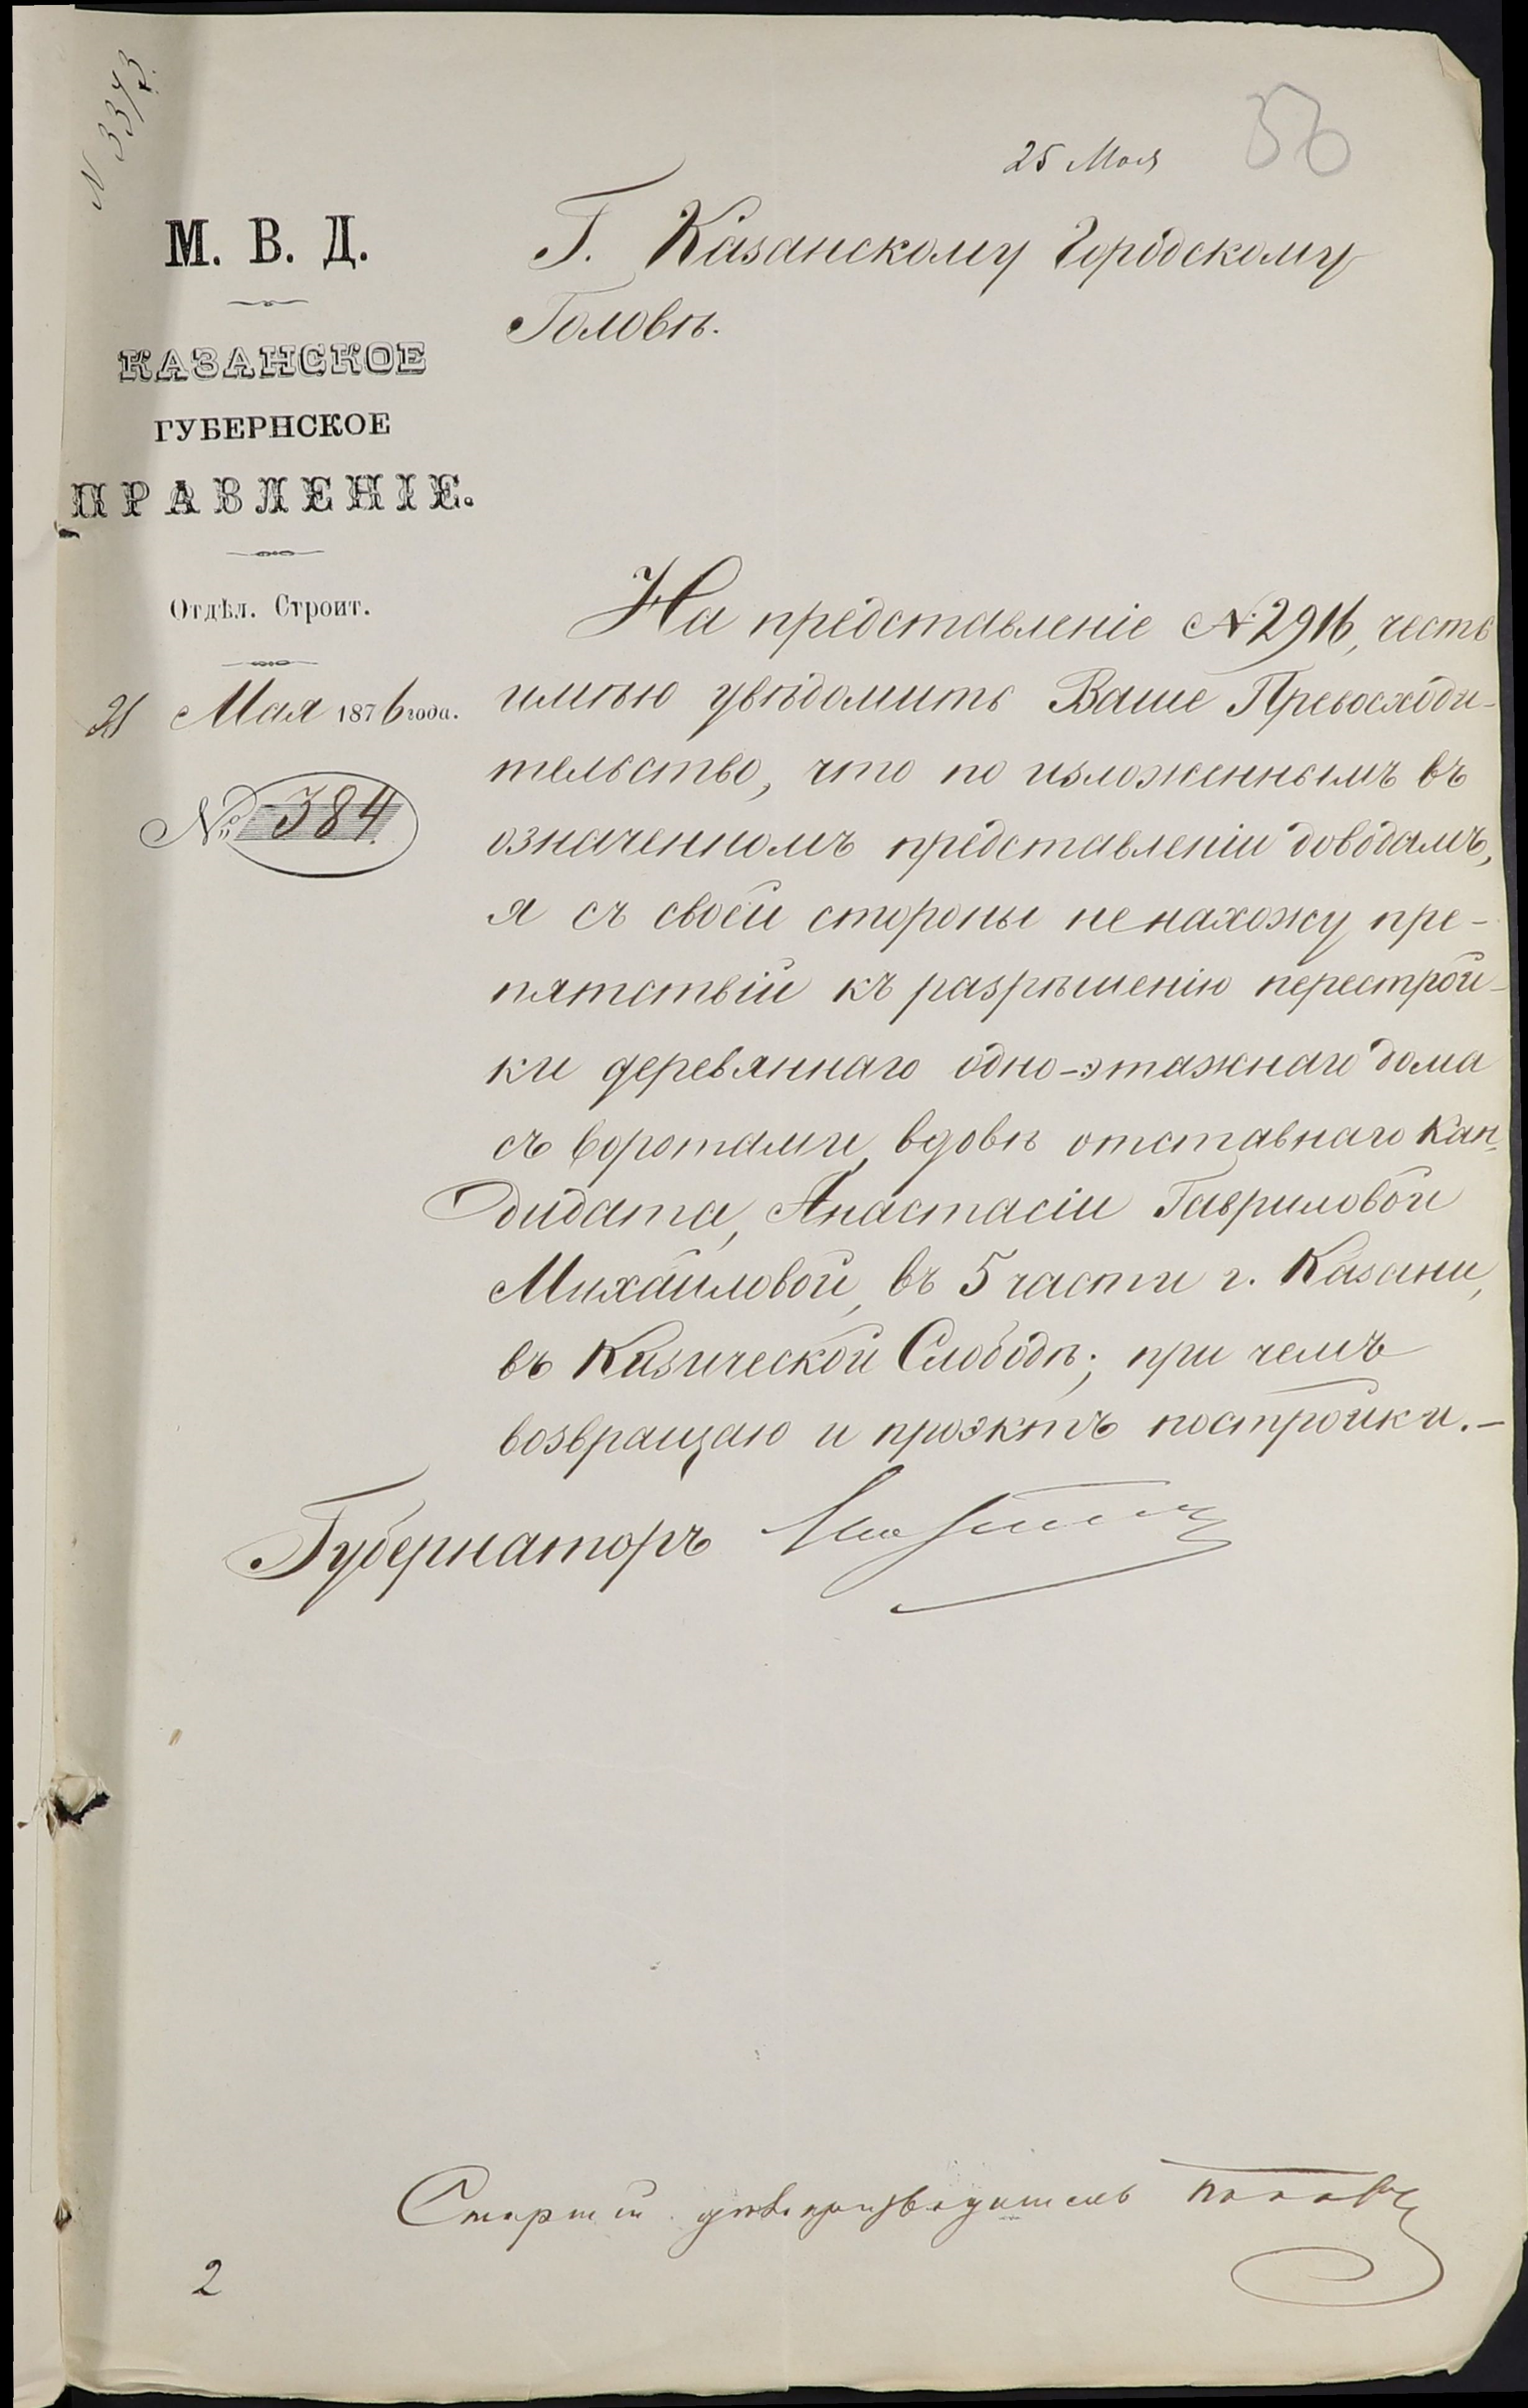 N 3343
25 Мая
56
М. В. Д.
КАЗАНСКОЕ
ГУБЕРНСКОЕ
ПРАВЛЕНІЕ.
Отдѣл. Строит.
21 Мая 1876 года.
№ 384
Г. Казанскому Городскому
Головѣ.
На представленіе № 2916, честь
имѣю увѣдомить Ваше Превосходи-
тельство, что по изложеннымъ въ
означенномъ представленіи доводамъ,
я съ своей стороны не нахожу пре-
пятствій къ разрѣшенію перестрой-
ки деревяннаго одно-этажнаго дома
съ воротами, вдовѣ отставнаго кан-
дидата, Анастасіи Гавриловой
Михайловой, въ 5 части г. Казани,
въ Кизической Слободѣ; при чемъ
возвращаю и проэктъ постройки.-
Губернаторъ
Старшій дѣлопроизводитель Поповъ
2